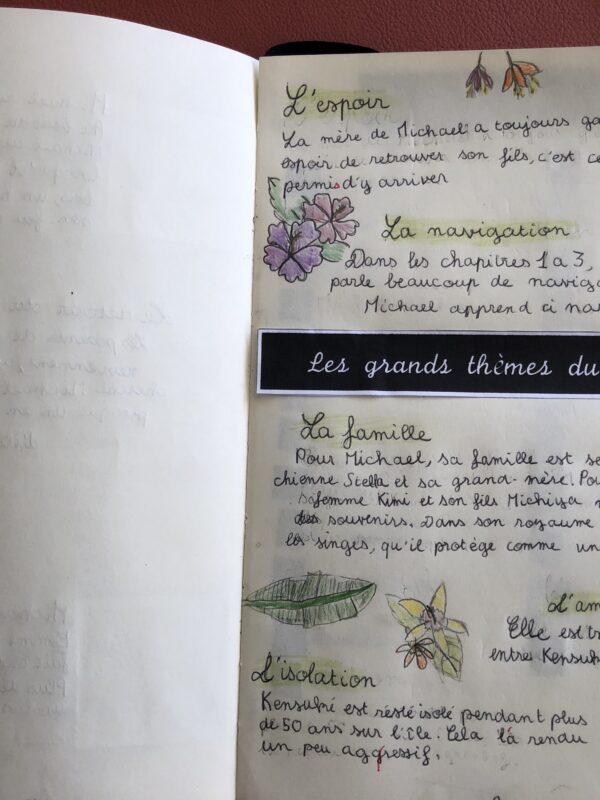 L'espoir
La mère de Michael a toujours ga
espoir de retrouver son fils, c'est ce
permis d'y arriver
La navigation
Dans les chapitres 1 a 3,
parle beaucoup de naviga
Michael apprend ci na
Les grands thèmes du
La famille
Pour Michael, sa famille est se
chienne Stella et sa grand-mère. Pou
sa femme Kimi et son fils Michiya
souvenirs. Dans son royaume
les singes, qu'il protège comme un
L'am
Elle est tr
entre Kensuk
L'isolation
Kensuké est resté isolé pendant plus
de 50 ans sur l'île. Cela l'a rendu
un peu aggressif.